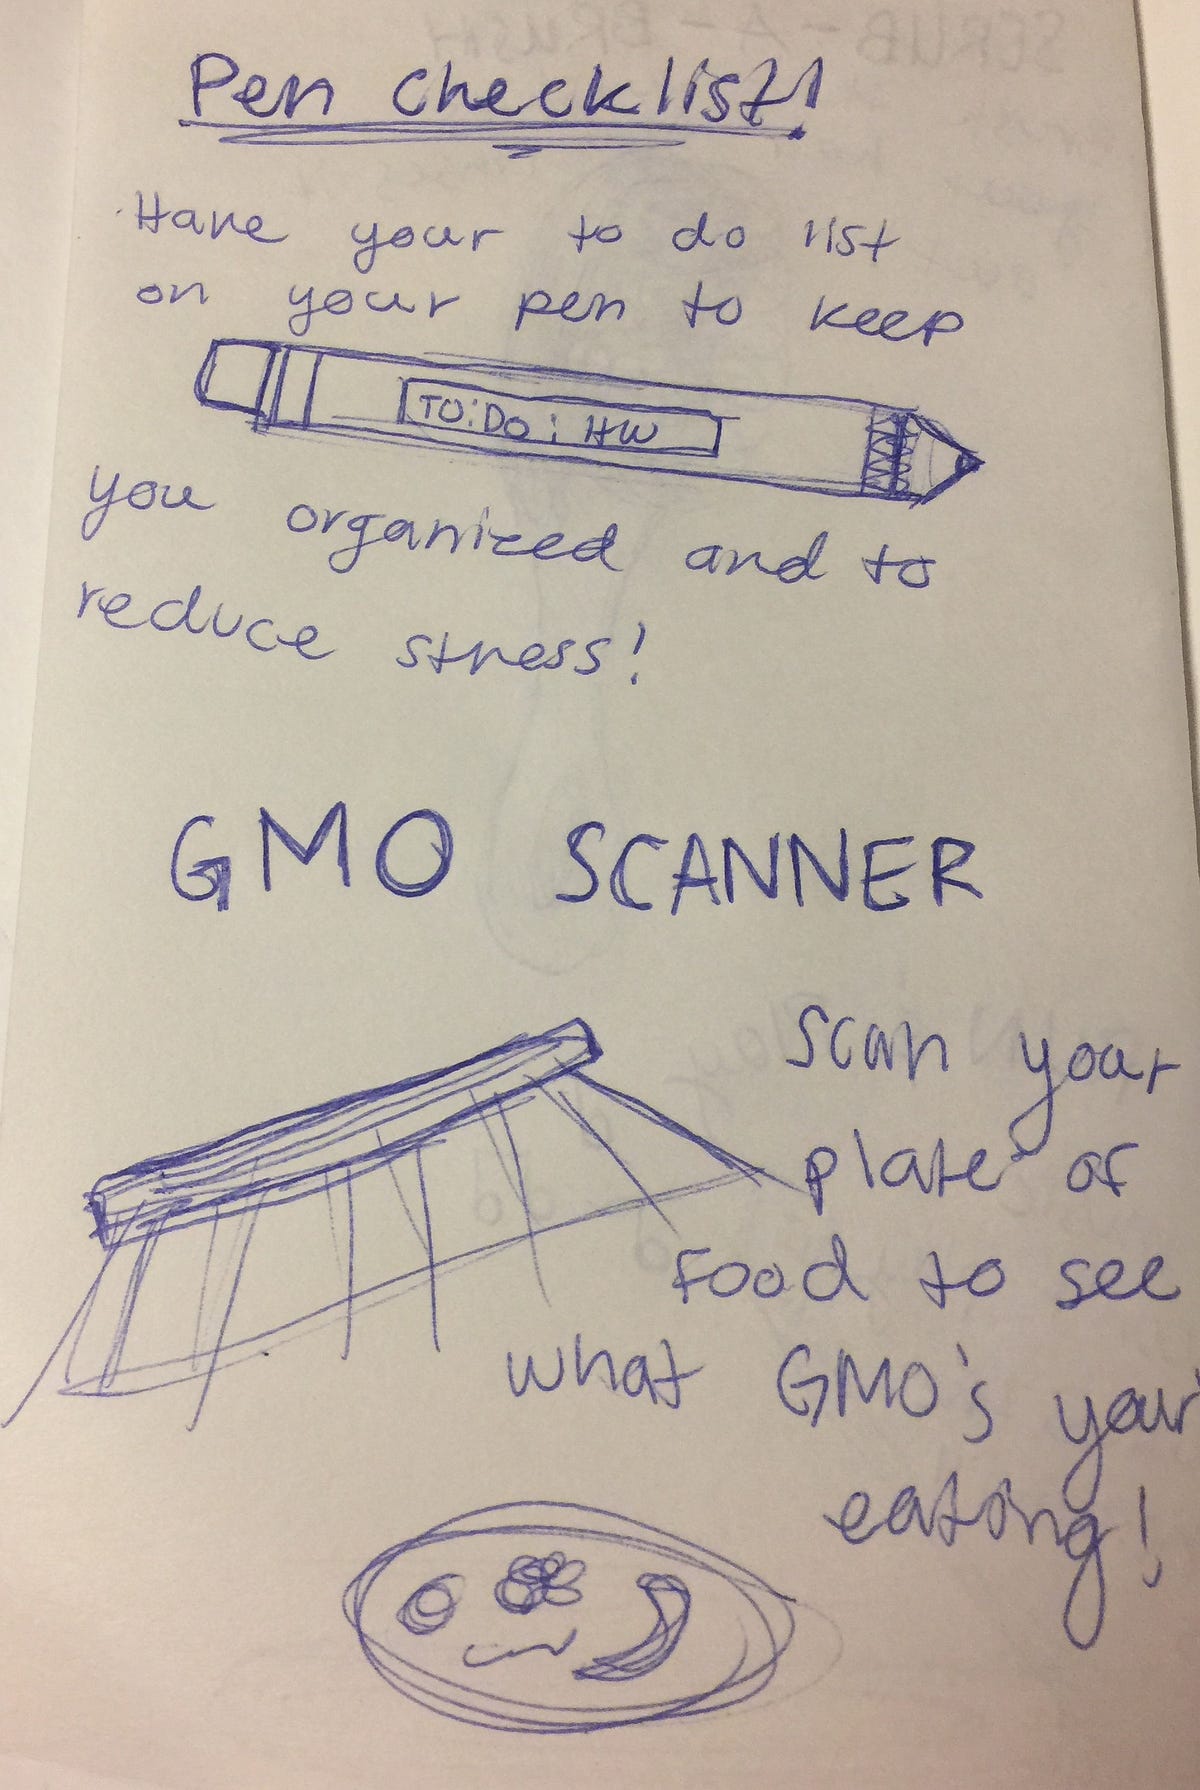 Pen Checklist!
Have your to do list
on your pen to keep
TO:DO: HW
you organized and to
reduce stress!
GMO SCANNER
Scan your
plate of
Food to see
what GMO's your
eating!
SCRUB-A-BRUSH